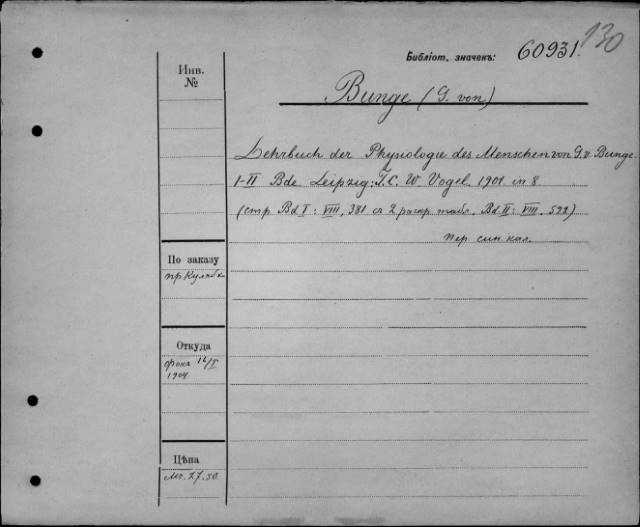 130
Библіот. значекъ: 60931.
Инв.
№
Bunge (G. von)
Lehrbuch der Physiologie des Menschen von G. v. Bunge.
I-II Bde Leipzig: F.C. W. Vogel. 1901 in 8
(стр Bd I: VIII, 381 съ 2 раскр табл. Bd. II: VIII. 592)
пер. син кал.
По заказу
пр Куляб
Откуда
12/I
1904
Цѣна
27.50